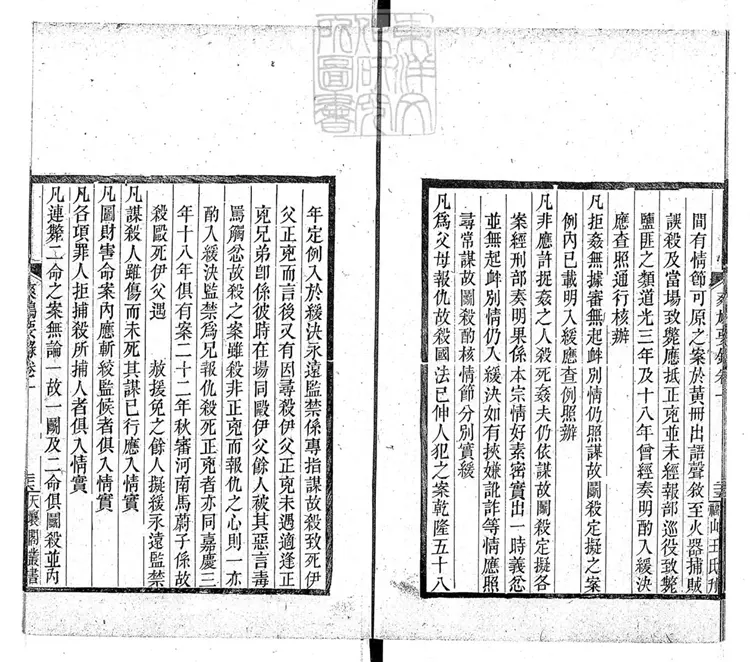 間有情節可原之案於黃冊出語聲敘至火器捕賊
誤殺及當場致斃應抵正兇並未經報部巡役致斃
鹽匪之類道光三年及十八年曾經奏明酌入緩決
應查照通行核辦
凡拒姦無據審無起衅別情仍照謀故鬬殺定擬之案
例內已載明入緩應查例照辦
凡非應許捉姦之人殺死姦夫仍依謀故鬬殺定擬各
案經刑部奏明果係本宗情好素密實出一時義忿
並無起衅別情仍入緩決如有挾嫌訛詐等情應照
尋常謀故鬬殺酌核情節分別實緩
凡為父母報仇故殺國法已伸人犯之案乾隆五十八
年定例入於緩決永遠監禁係專指謀故殺致死伊
父正兇而言後又有因尋殺伊父正兇未遇適逢正
兇兄弟卽係彼時在場同毆伊父餘人被其惡言毒
罵觸忿故殺之案雖殺非正兇而報仇之心則一亦
酌入緩決監禁為兄報仇殺死正兇者亦同嘉慶三
年十八年俱有案二十二年秋審河南馬蔚子係故
殺毆死伊父遇 赦援免之餘人擬緩永遠監禁
凡謀殺人雖傷而未死其謀已行應入情實
凡圖財害命案內應斬絞監候者俱入情實
凡各項罪人拒捕殺所捕人者俱入情實
凡連斃二命之案無論一故一鬬及二命俱鬬殺並內
天壤閣叢書